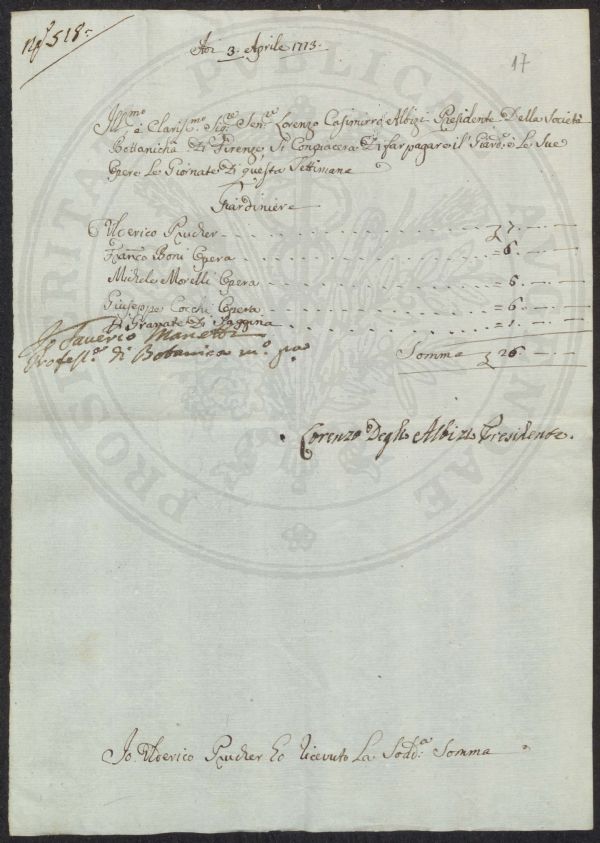 N.º 518=
17
Adi 3. Aprile 1773.
Ill.mo e Clariss.mo Sig.re Sen.re Lorenzo Casimirro Albizi Presidente Della Società
Bottanicha Di Firenze Si Conpiacerà Di far pagare il Giard.e e Le Sue
Opere Le Giornate Di questa Settimana
Giardiniere
Ulderico Prucher - - - 7. - -
Fran.co Boni Opera - - - = 6. - -
Michele Morelli Opera - - - = 6 - -
Giuseppe Cocchi Opera - - - = 6. - -
Di Granate Di Saggina - - - = 1. - -
Somma 26. - -
J. Saverio Manetti
Profess.e di Botanica m.o p.a
Lorenzo Degli Albizi Presidente.
Io Ulderico Prucher Ho Ricevuto La Sodd.a Somma
PROSPERITATI PUBLICAE AUGENDAE